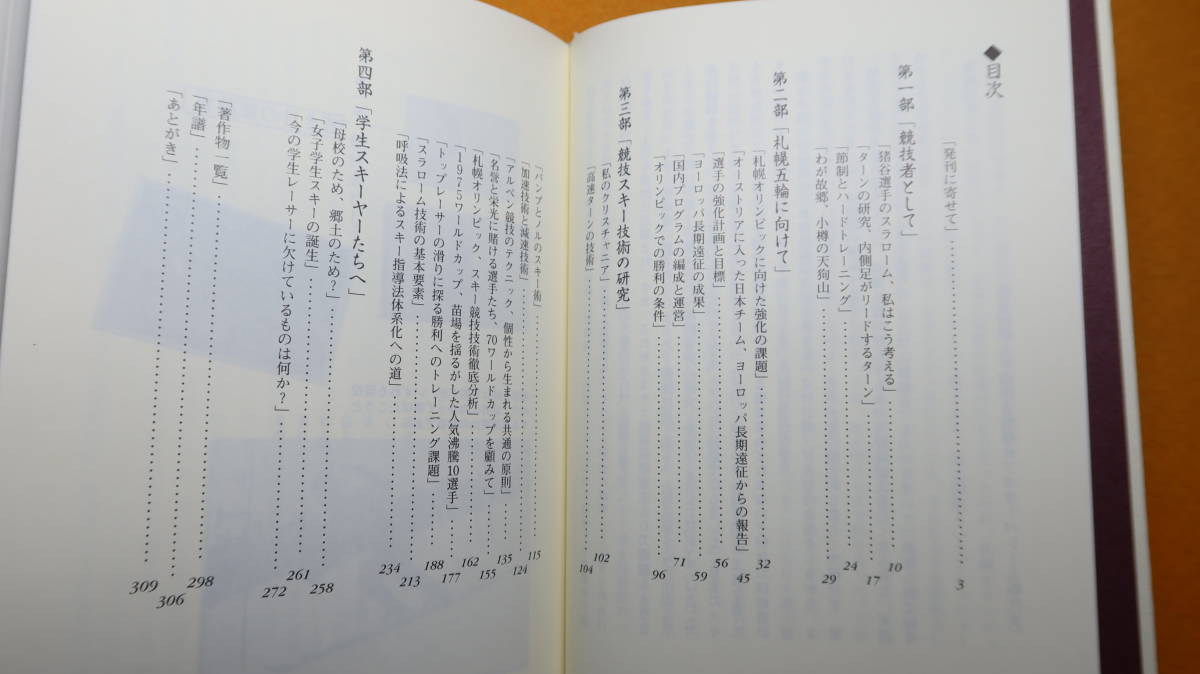 ◆目次
「発刊に寄せて」 3
第一部「競技者として」
「猪谷選手のスラローム、私はこう考える」 10
「ターンの研究、内側足がリードするターン」 17
「節制とハードトレーニング」 24
「わが故郷、小樽の天狗山」 29
第二部「札幌五輪に向けて」
「札幌オリンピックに向けた強化の課題」 32
「オーストリアに入った日本チーム、ヨーロッパ長期遠征からの報告」 45
「選手の強化計画と目標」 56
「ヨーロッパ長期遠征の成果」 59
「国内プログラムの編成と運営」 71
「オリンピックでの勝利の条件」 96
第三部「競技スキー技術の研究」
「私のクリスチャニア」 102
「高速ターンの技術」 104
「バンプとノルのスキー術」 115
「加速技術と減速技術」 124
「アルペン競技のテクニック、個性から生まれる共通の原則」 135
「名誉と栄光に賭ける選手たち、70ワールドカップを顧みて」 155
「札幌オリンピック、スキー競技技術徹底分析」 162
「1975ワールドカップ、苗場を揺るがした人気沸騰10選手」 177
「トップレーサーの滑りに探る勝利へのトレーニング課題」 188
「スラローム技術の基本要素」 213
「呼吸法によるスキー指導法体系化への道」 234
第四部「学生スキーヤーたちへ」
「母校のため、郷土のため?」 258
「女子学生スキーの誕生」 261
「今の学生レーサーに欠けているものは何か?」 272
「著作物一覧」 298
「年譜」 306
「あとがき」 309